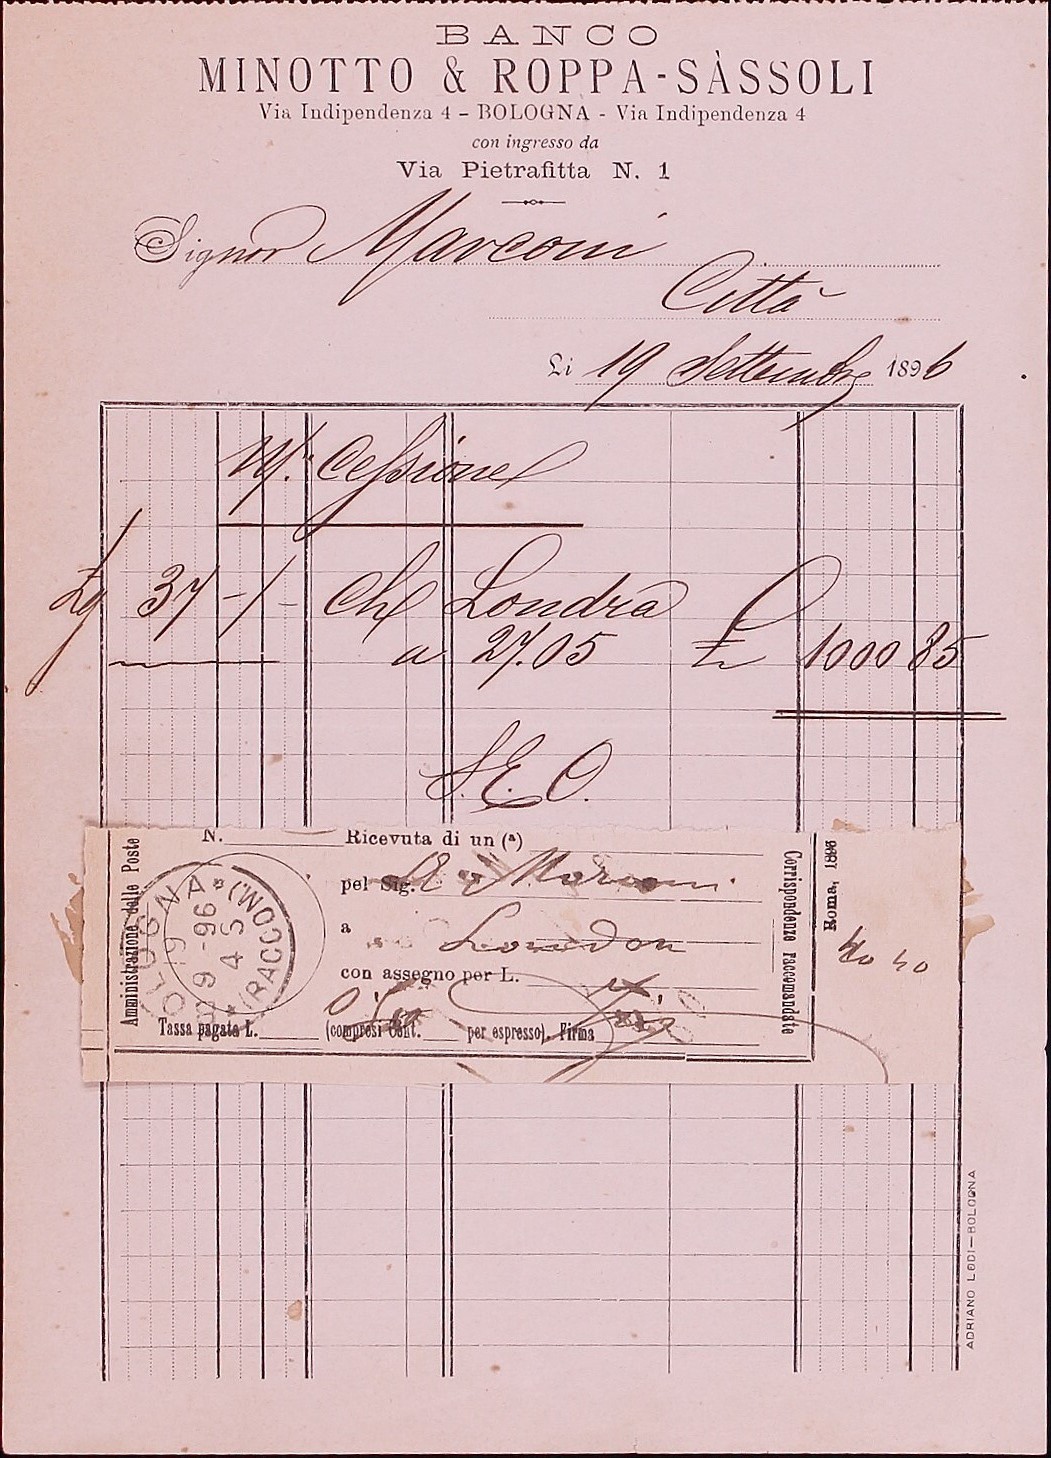 BANCO
MINOTTO & ROPPA-SÀSSOLI
Via Indipendenza 4 - BOLOGNA - Via Indipendenza 4
con ingresso da
Via Pietrafitta N. 1
Signor Marconi
Città
Li 19 Settembre 1896
Cessione
37 -/- Chq Londra
a 27.05 1000 85
S.E.O.
N. Ricevuta di un (a)
pel Sig. Marconi
a London
con assegno per L.
Tassa pagata L. (compresi Cent. per espresso). Firma
Amministrazione delle Poste
BOLOGNA (RACCOM)
19 9 - 96
4 S
Corrispondenze raccomandate
Roma, 1896
ADRIANO LODI - BOLOGNA